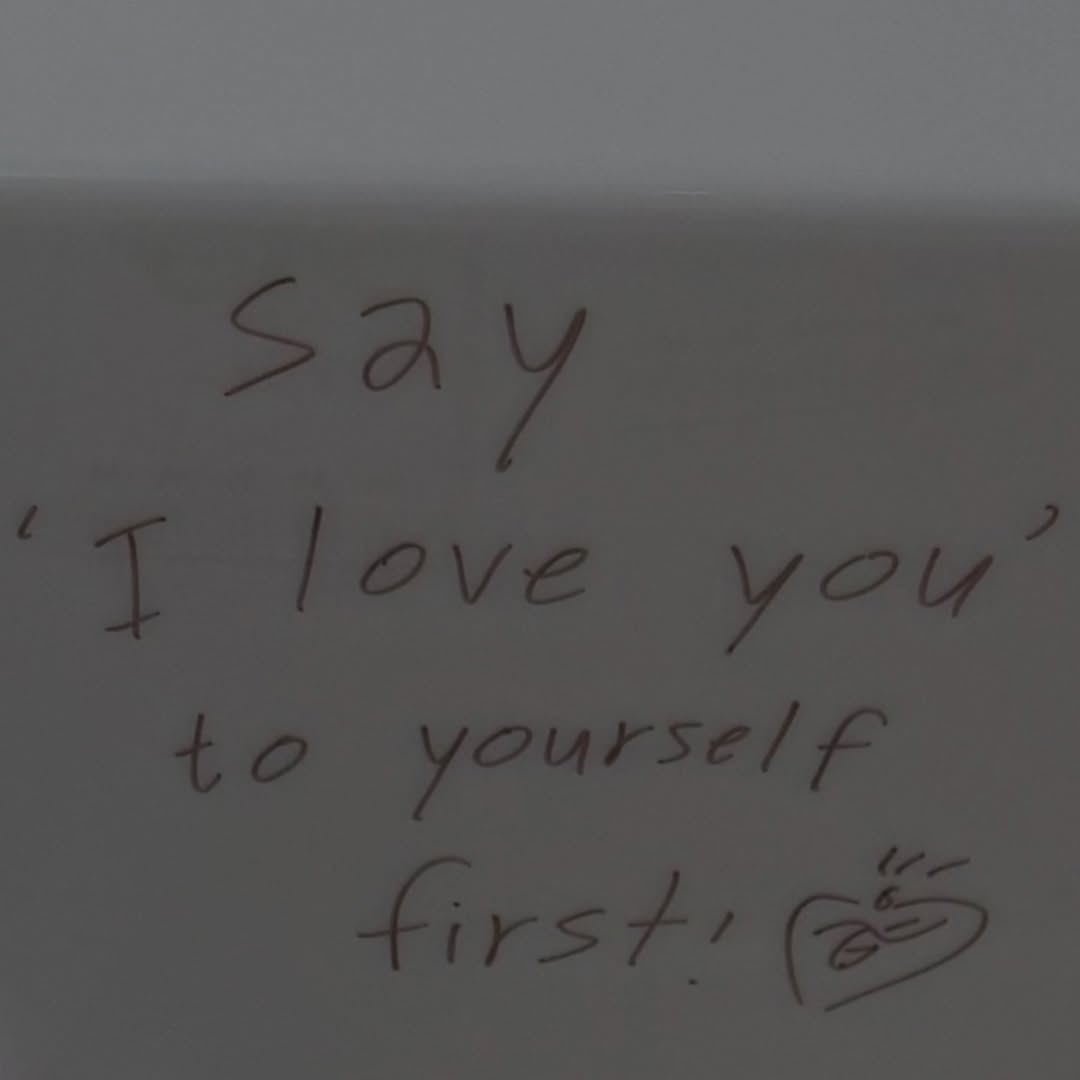 say
'I love you'
to yourself
first!